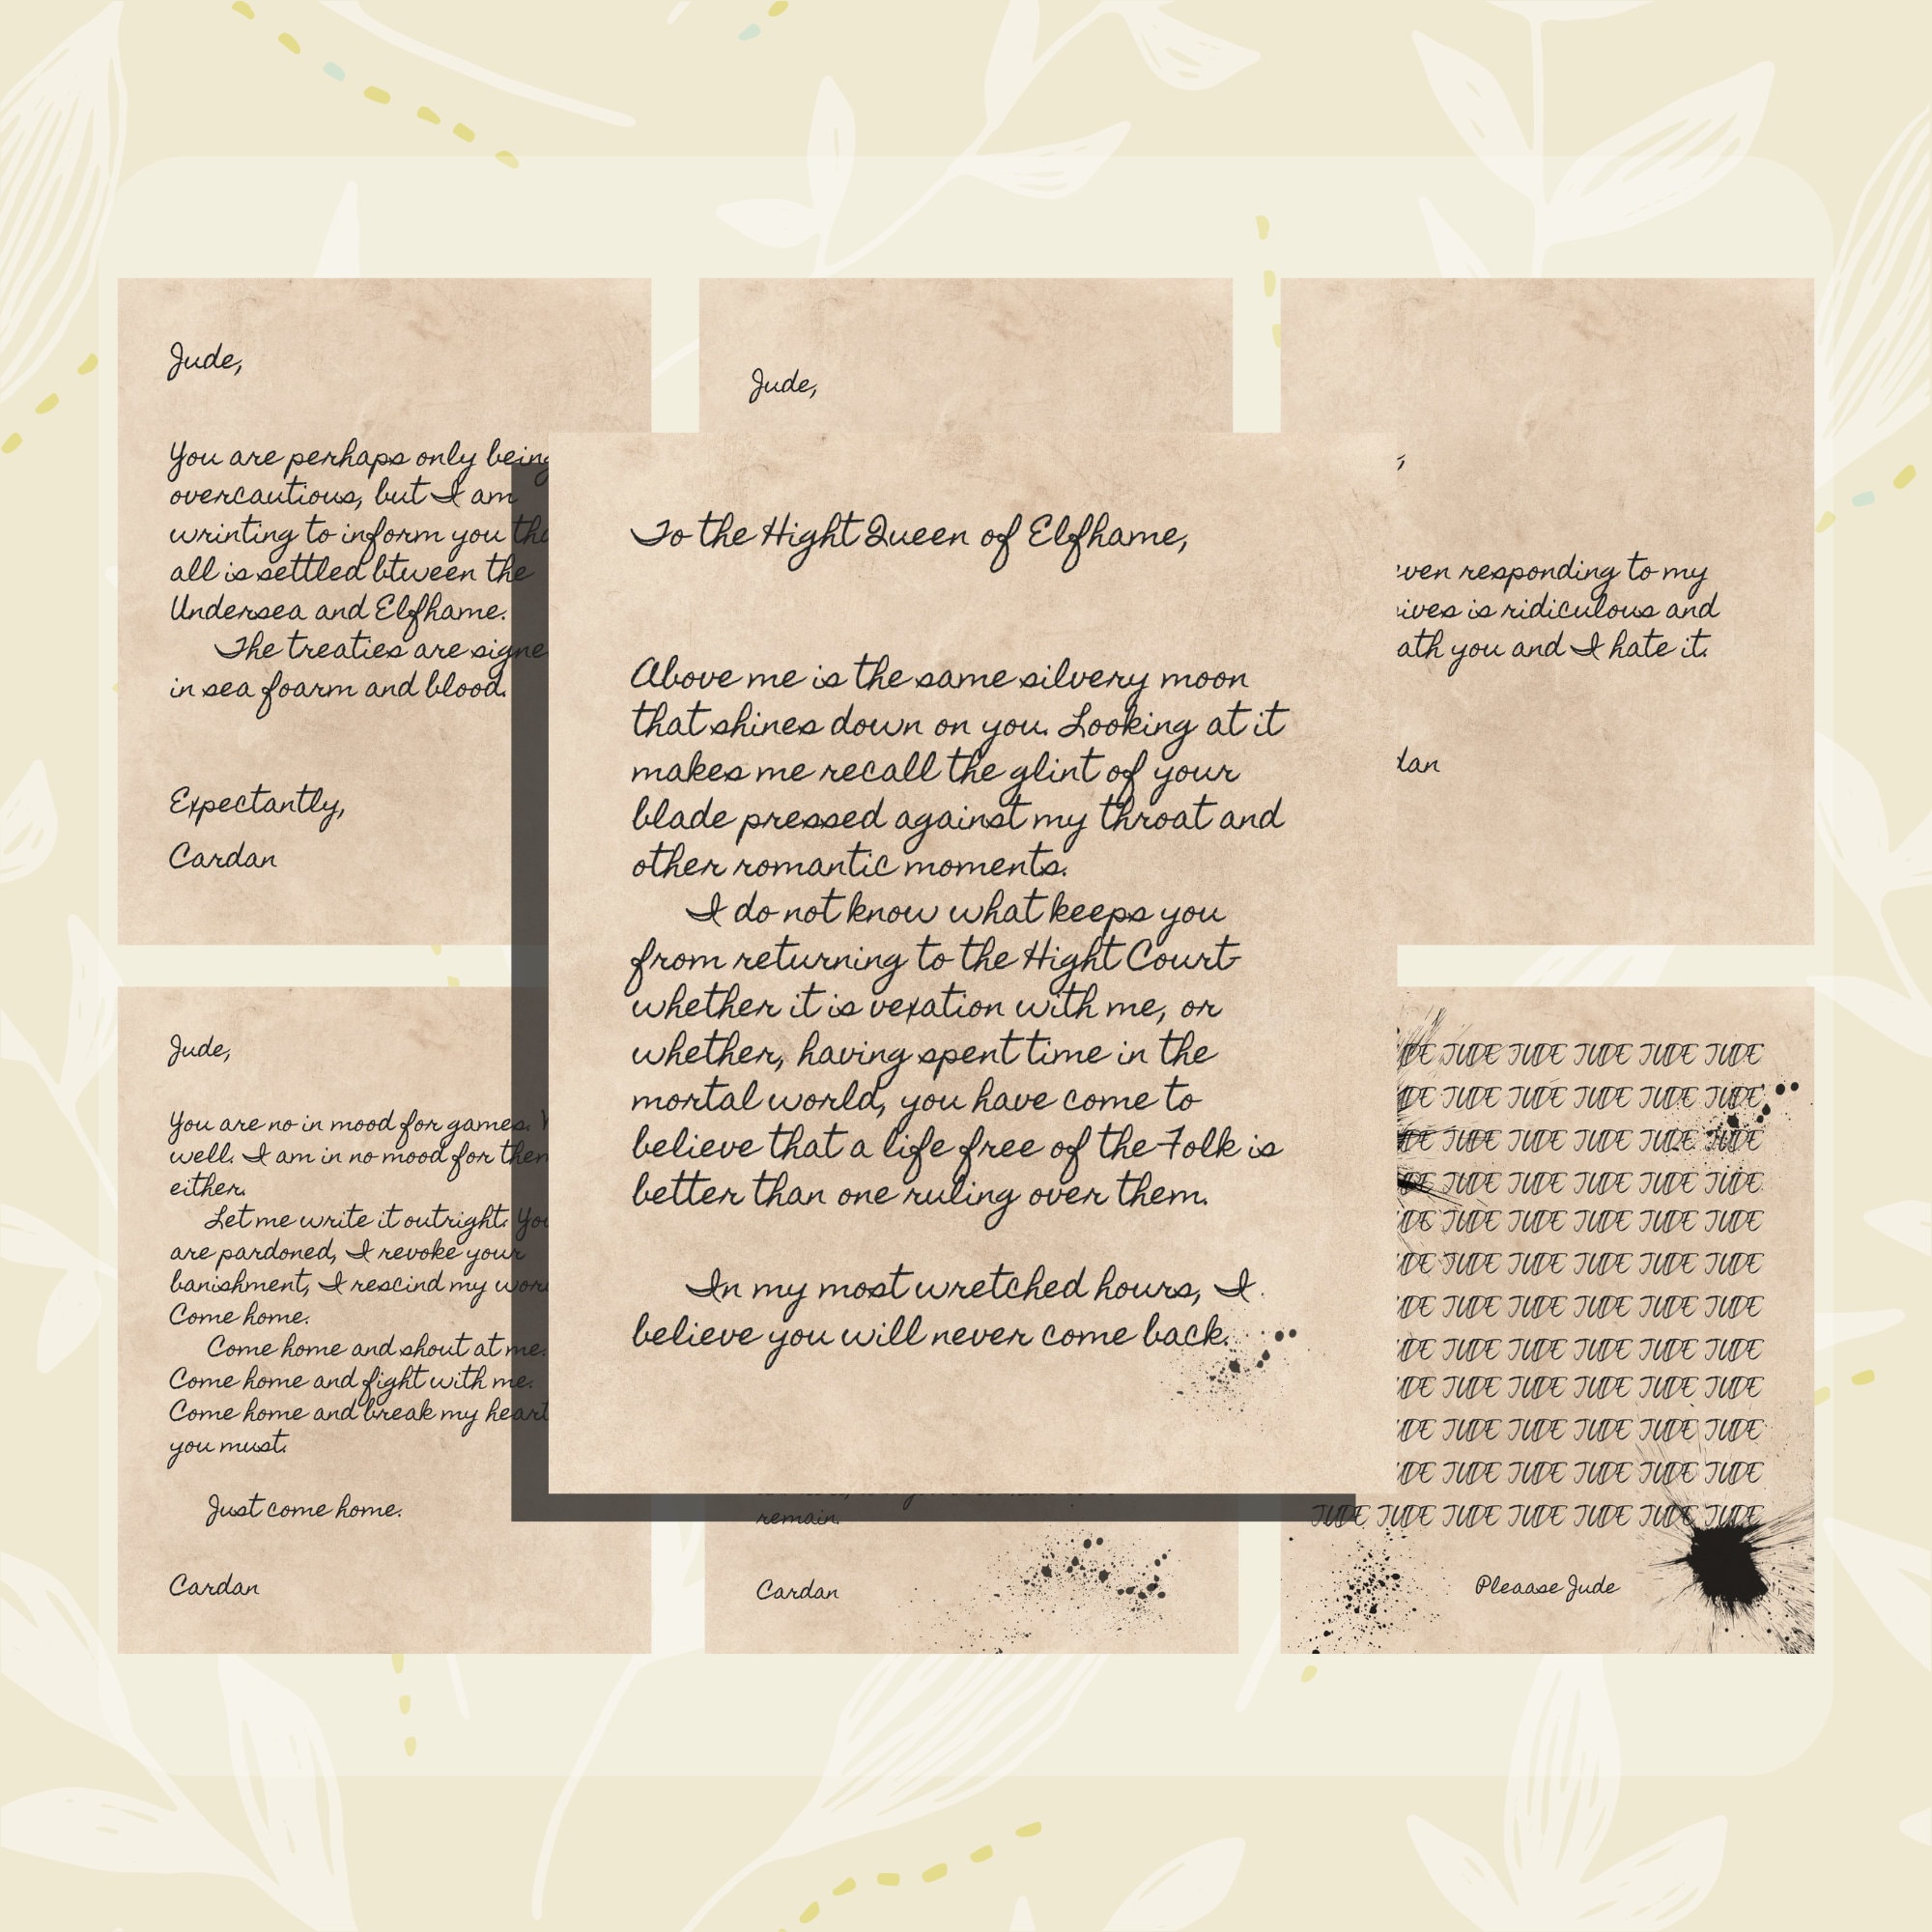 Jude,
You are perhaps only being
overcautious, but I am
wrinting to inform you
all is settled btween the
Undersea and Elfhame.
The treaties are
in sea foarm and blood.
Expectantly,
Cardan
Jude,
responding to my
is ridiculous and
you and I hate it.
To the Hight Queen of Elfhame,
Above me is the same silvery moon
that shines down on you. Looking at it
makes me recall the glint of your
blade pressed against my throat and
other romantic moments.
I do not know what keeps you
from returning to the Hight Court-
whether it is vexation with me, or
whether, having spent time in the
mortal world, you have come to
believe that a life free of the Folk is
better than one ruling over them.
In my most wretched hours, I
believe you will never come back.
Jude,
You are no in mood for games.
well. I am in no mood for
either.
Let me write it outright. You
are pardoned, I revoke your
banishment, I rescind my
Come home.
Come home and shout at me.
Come home and fight with me.
Come home and break my heart
you must.
Just come home.
Cardan
remain.
Cardan
JUDE JUDE JUDE JUDE JUDE
JUDE JUDE JUDE JUDE JUDE
JUDE JUDE JUDE JUDE JUDE
JUDE JUDE JUDE JUDE JUDE
JUDE JUDE JUDE JUDE JUDE
JUDE JUDE JUDE JUDE JUDE
JUDE JUDE JUDE JUDE JUDE
JUDE JUDE JUDE JUDE JUDE
JUDE JUDE JUDE JUDE JUDE
JUDE JUDE JUDE JUDE JUDE
JUDE JUDE JUDE JUDE JUDE
JUDE JUDE JUDE JUDE JUDE JUDE JUDE
Pleaase Jude